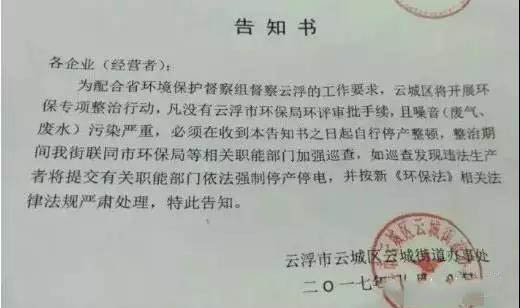 告知书
各企业（经营者）：
为配合省环境保护督察组督察云浮的工作要求，云城区将开展环
保专项整治行动，凡没有云浮市环保局环评审批手续，且噪音（废气、
废水）污染严重，必须在收到本告知书之日起自行停产整顿，整治期
间我街联同市环保局等相关职能部门加强巡查，如巡查发现违法生产
者将提交有关职能部门依法强制停产停电，并按新《环保法》相关法
律法规严肃处理，特此告知。
云浮市云城区云城街道办事处
二〇一七年